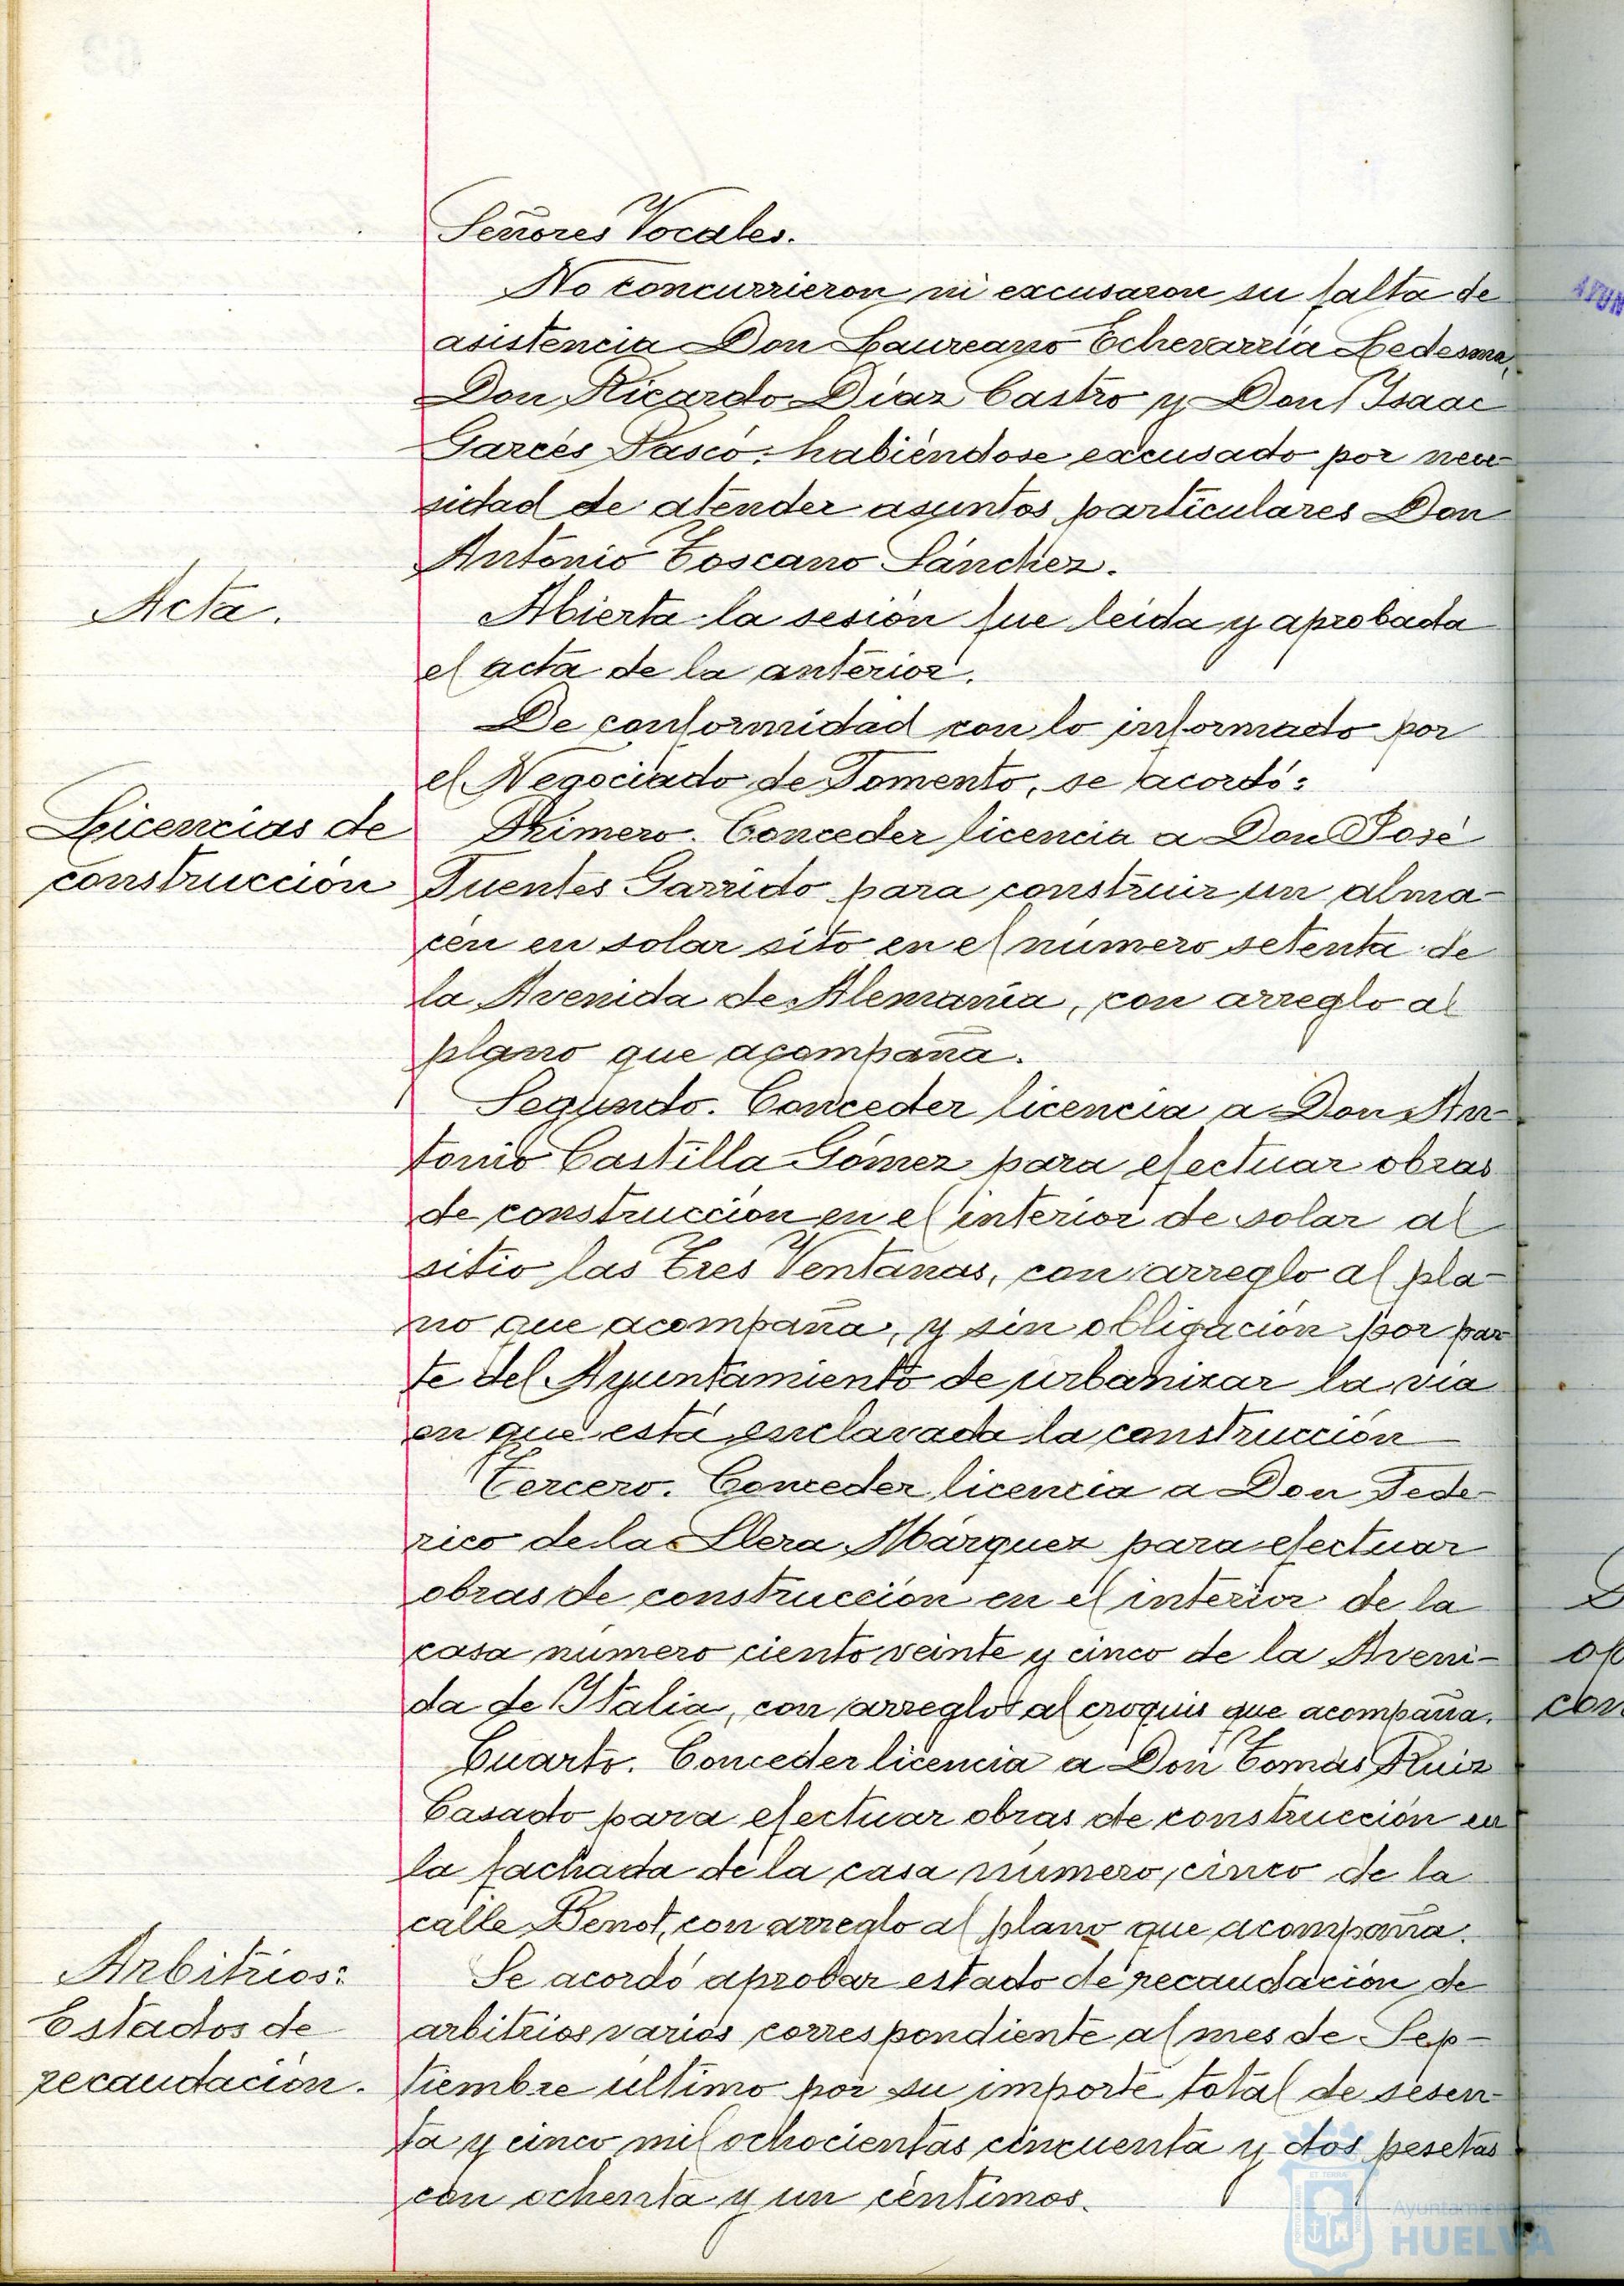 Señores Vocales.
No concurrieron ni excusaron su falta de
asistencia Don Laureano Echevarría Ledesma,
Don Ricardo Díaz Castro y Don Isaac
Garcés Pascó, habiéndose excusado por nece-
sidad de atender asuntos particulares Don
Antonio Toscano Sánchez.
Acta.
Abierta la sesión fue leída y aprobada
el acta de la anterior.
De conformidad con lo informado por
el Negociado de Fomento, se acordó:
Licencias de
construcción
Primero. Conceder licencia a Don José
Fuentes Garrido para construir un alma-
cén en solar sito en el número setenta de
la Avenida de Alemania, con arreglo al
plano que acompaña.
Segundo. Conceder licencia a Don An-
tonio Castilla Gómez para efectuar obras
de construcción en el interior de solar al
sitio las Tres Ventanas, con arreglo al pla-
no que acompaña, y sin obligación por par
te del Ayuntamiento de urbanizar la vía
en que está enclavada la construcción
Tercero. Conceder licencia a Don Fede-
rico de la Llera Márquez para efectuar
obras de construcción en el interior de la
casa número ciento veinte y cinco de la Aveni-
da de Italia, con arreglo al croquis que acompaña.
Cuarto. Conceder licencia a Don Tomás Ruiz
Casado para efectuar obras de construcción en
la fachada de la casa número cinco de la
calle Benot, con arreglo al plano que acompaña.
Arbitrios:
Estados de
recaudación.
Se acordó aprobar estado de recaudación de
arbitrios varios correspondiente al mes de Sep-
tiembre último por su importe total de sesen-
ta y cinco mil ochocientas cincuenta y dos pesetas
con ochenta y un céntimos.
Ayuntamiento de
HUELVA